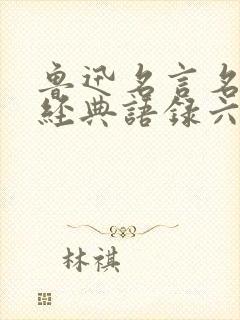 魯迅名言名
經典語録六
林祺